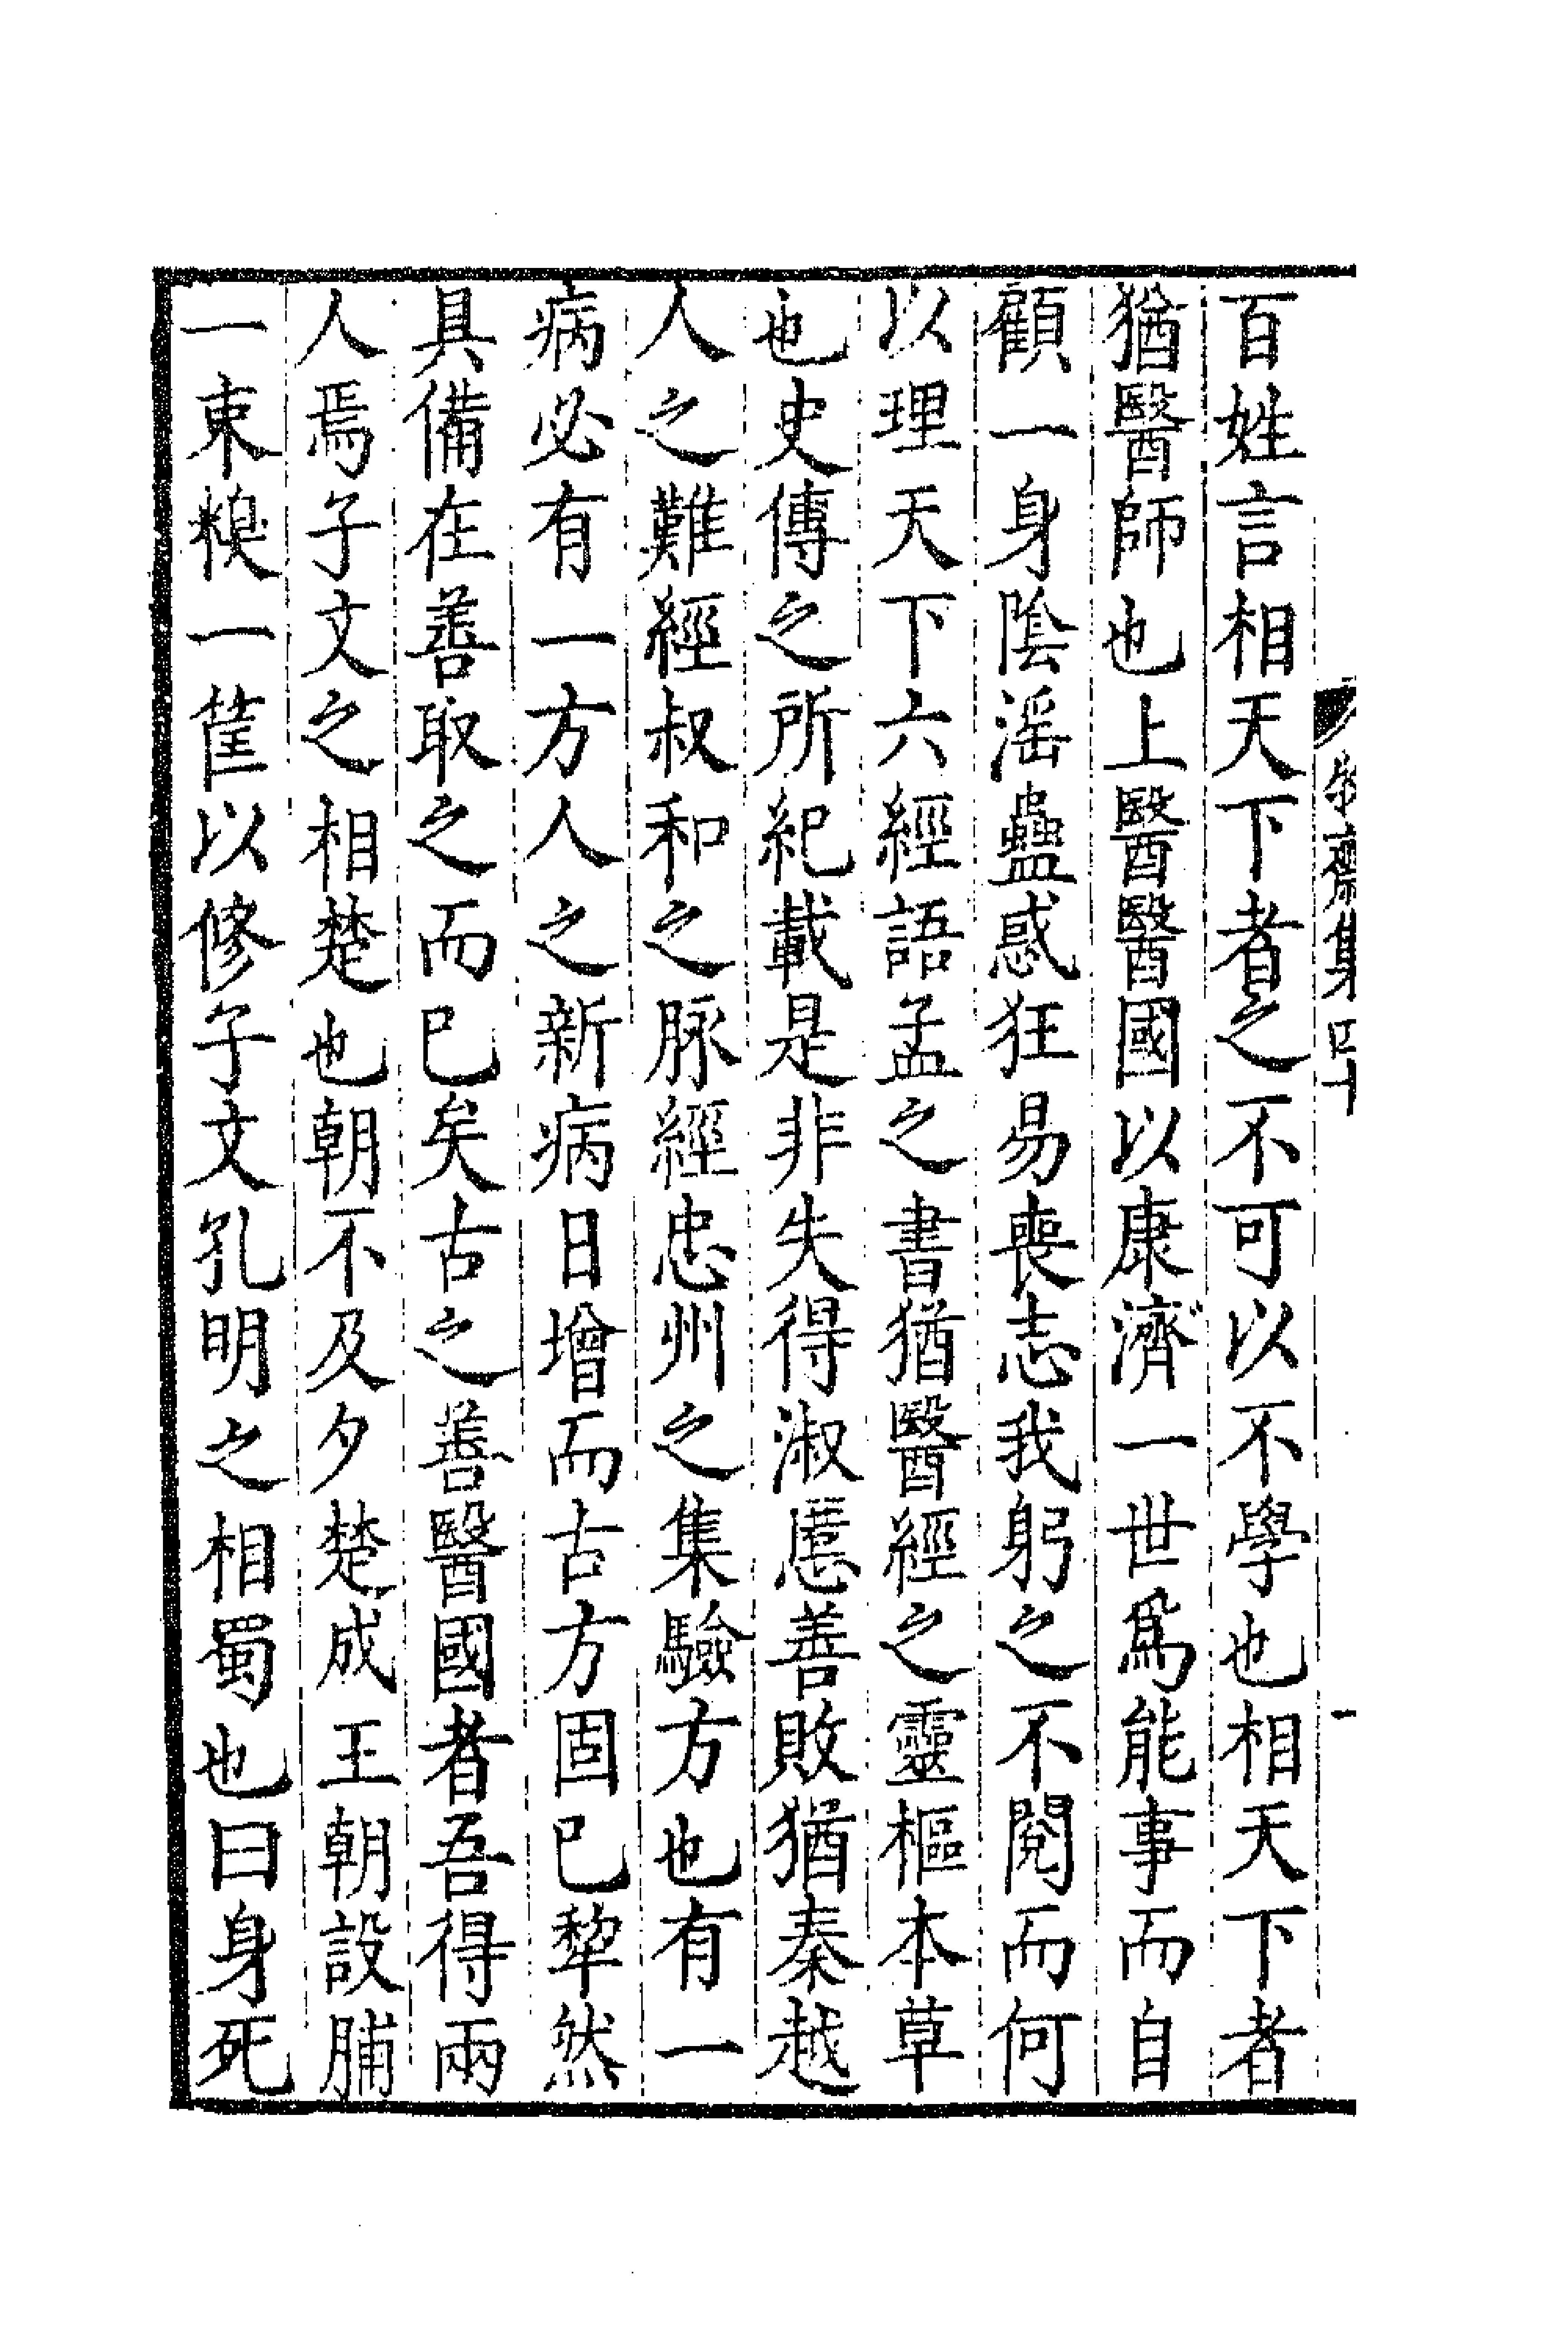 百姓言相天下者之不可以不學也相天下者
猶醫師也上醫醫國以康濟一世爲能事而自
顧一身陰滛蠱惑狂易喪志我躬之不閱而何
以理天下六經語孟之書猶醫經之靈樞本草
也史傳之所紀載是非失得淑慝善敗猶秦越
人之難經叔和之脉經忠州之集驗方也有一
病必有一方人之新病日增而古方固已犂然
具備在善取之而已矣古之善醫國者吾得兩
人焉子文之相楚也朝不及夕楚成王朝設脯
一束糗一筐以修子文孔明之相蜀也曰身死